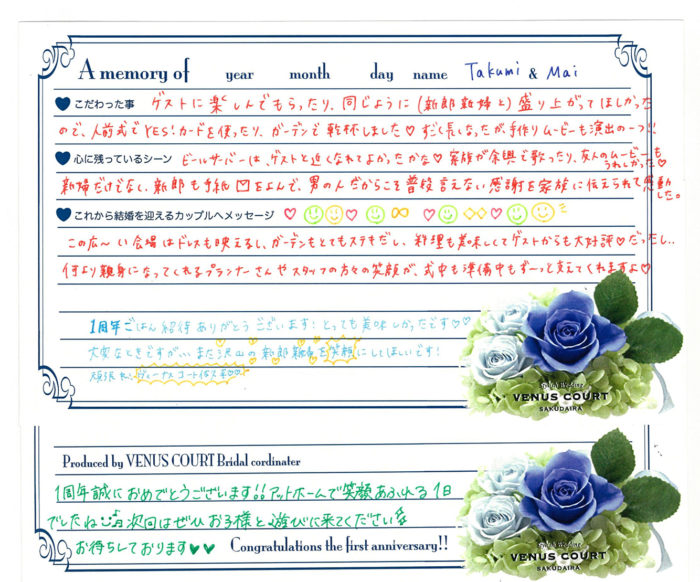 A memory of year month day name Takumi & Mai
こだわった事 ゲストに楽しんでもらったり、同じように(新郎新婦と)盛り上がってほしかった
ので、人前式でYES!カードを使ったり、ガーデンで乾杯しました♡すごく長くなったが手作りムービーも演出の一つ!!
心に残っているシーン ビールサーバーは、ゲストと近くなれてよかったかな♡家族が余興で歌ったり、友人のムービーも
うれしかった♡
新婦だけでなく、新郎も手紙をよんで、男の人だからこそ普段言えない感謝を家族に伝えられて感動
した。
これから結婚を迎えるカップルへメッセージ
この広〜い会場はドレスも映えるし、ガーデンもとてもステキだし、料理も美味しくてゲストからも大好評♡だったし..
何より親身になってくれるプランナーさんやスタッフの方々の笑顔が、式中も準備中もずーっと支えてくれますよ♡
1周年ごはん招待ありがとうございます!とっても美味しかったです♡♡
大変なときですが... また沢山の新郎新婦を笑顔にしてほしいです!
頑張れ、ヴィーナスコート佐久平♡♡
VENUS COURT
SAKUDAIRA
Produced by VENUS COURT Bridal cordinater
1周年誠におめでとうございます!!アットホームで笑顔あふれる1日
でしたね 次回はぜひお子様と遊びに来てください
お待ちしております♥♥ Congratulations the first anniversary!!
VENUS COURT
SAKUDAIRA